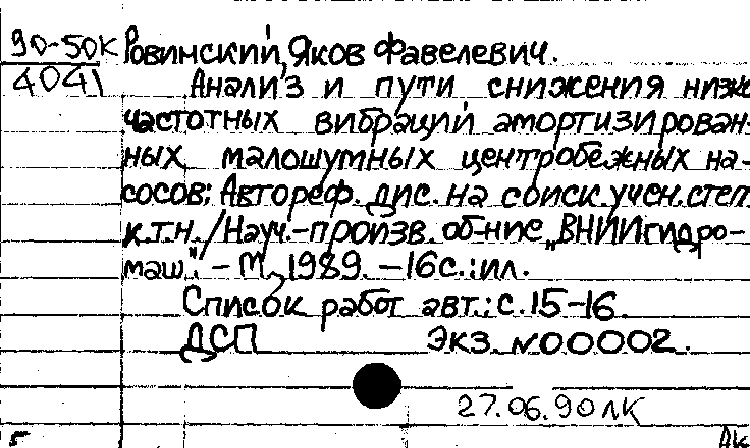 90-50К Ровинский, Яков Фавелевич.
4041 Анализ и пути снижения низко
частотных вибраций амортизирован-
ных малошумных центробежных на-
сосов: Автореф. дис. на соиск. учен. степ
к.т.н. / Науч.-произв. об-ние „ВНИИгидро-
маш". - М., 1989. - 16с.: ил.
Список работ авт.: с. 15-16.
ДСП Экз. N00002.
27.06.90 ЛК